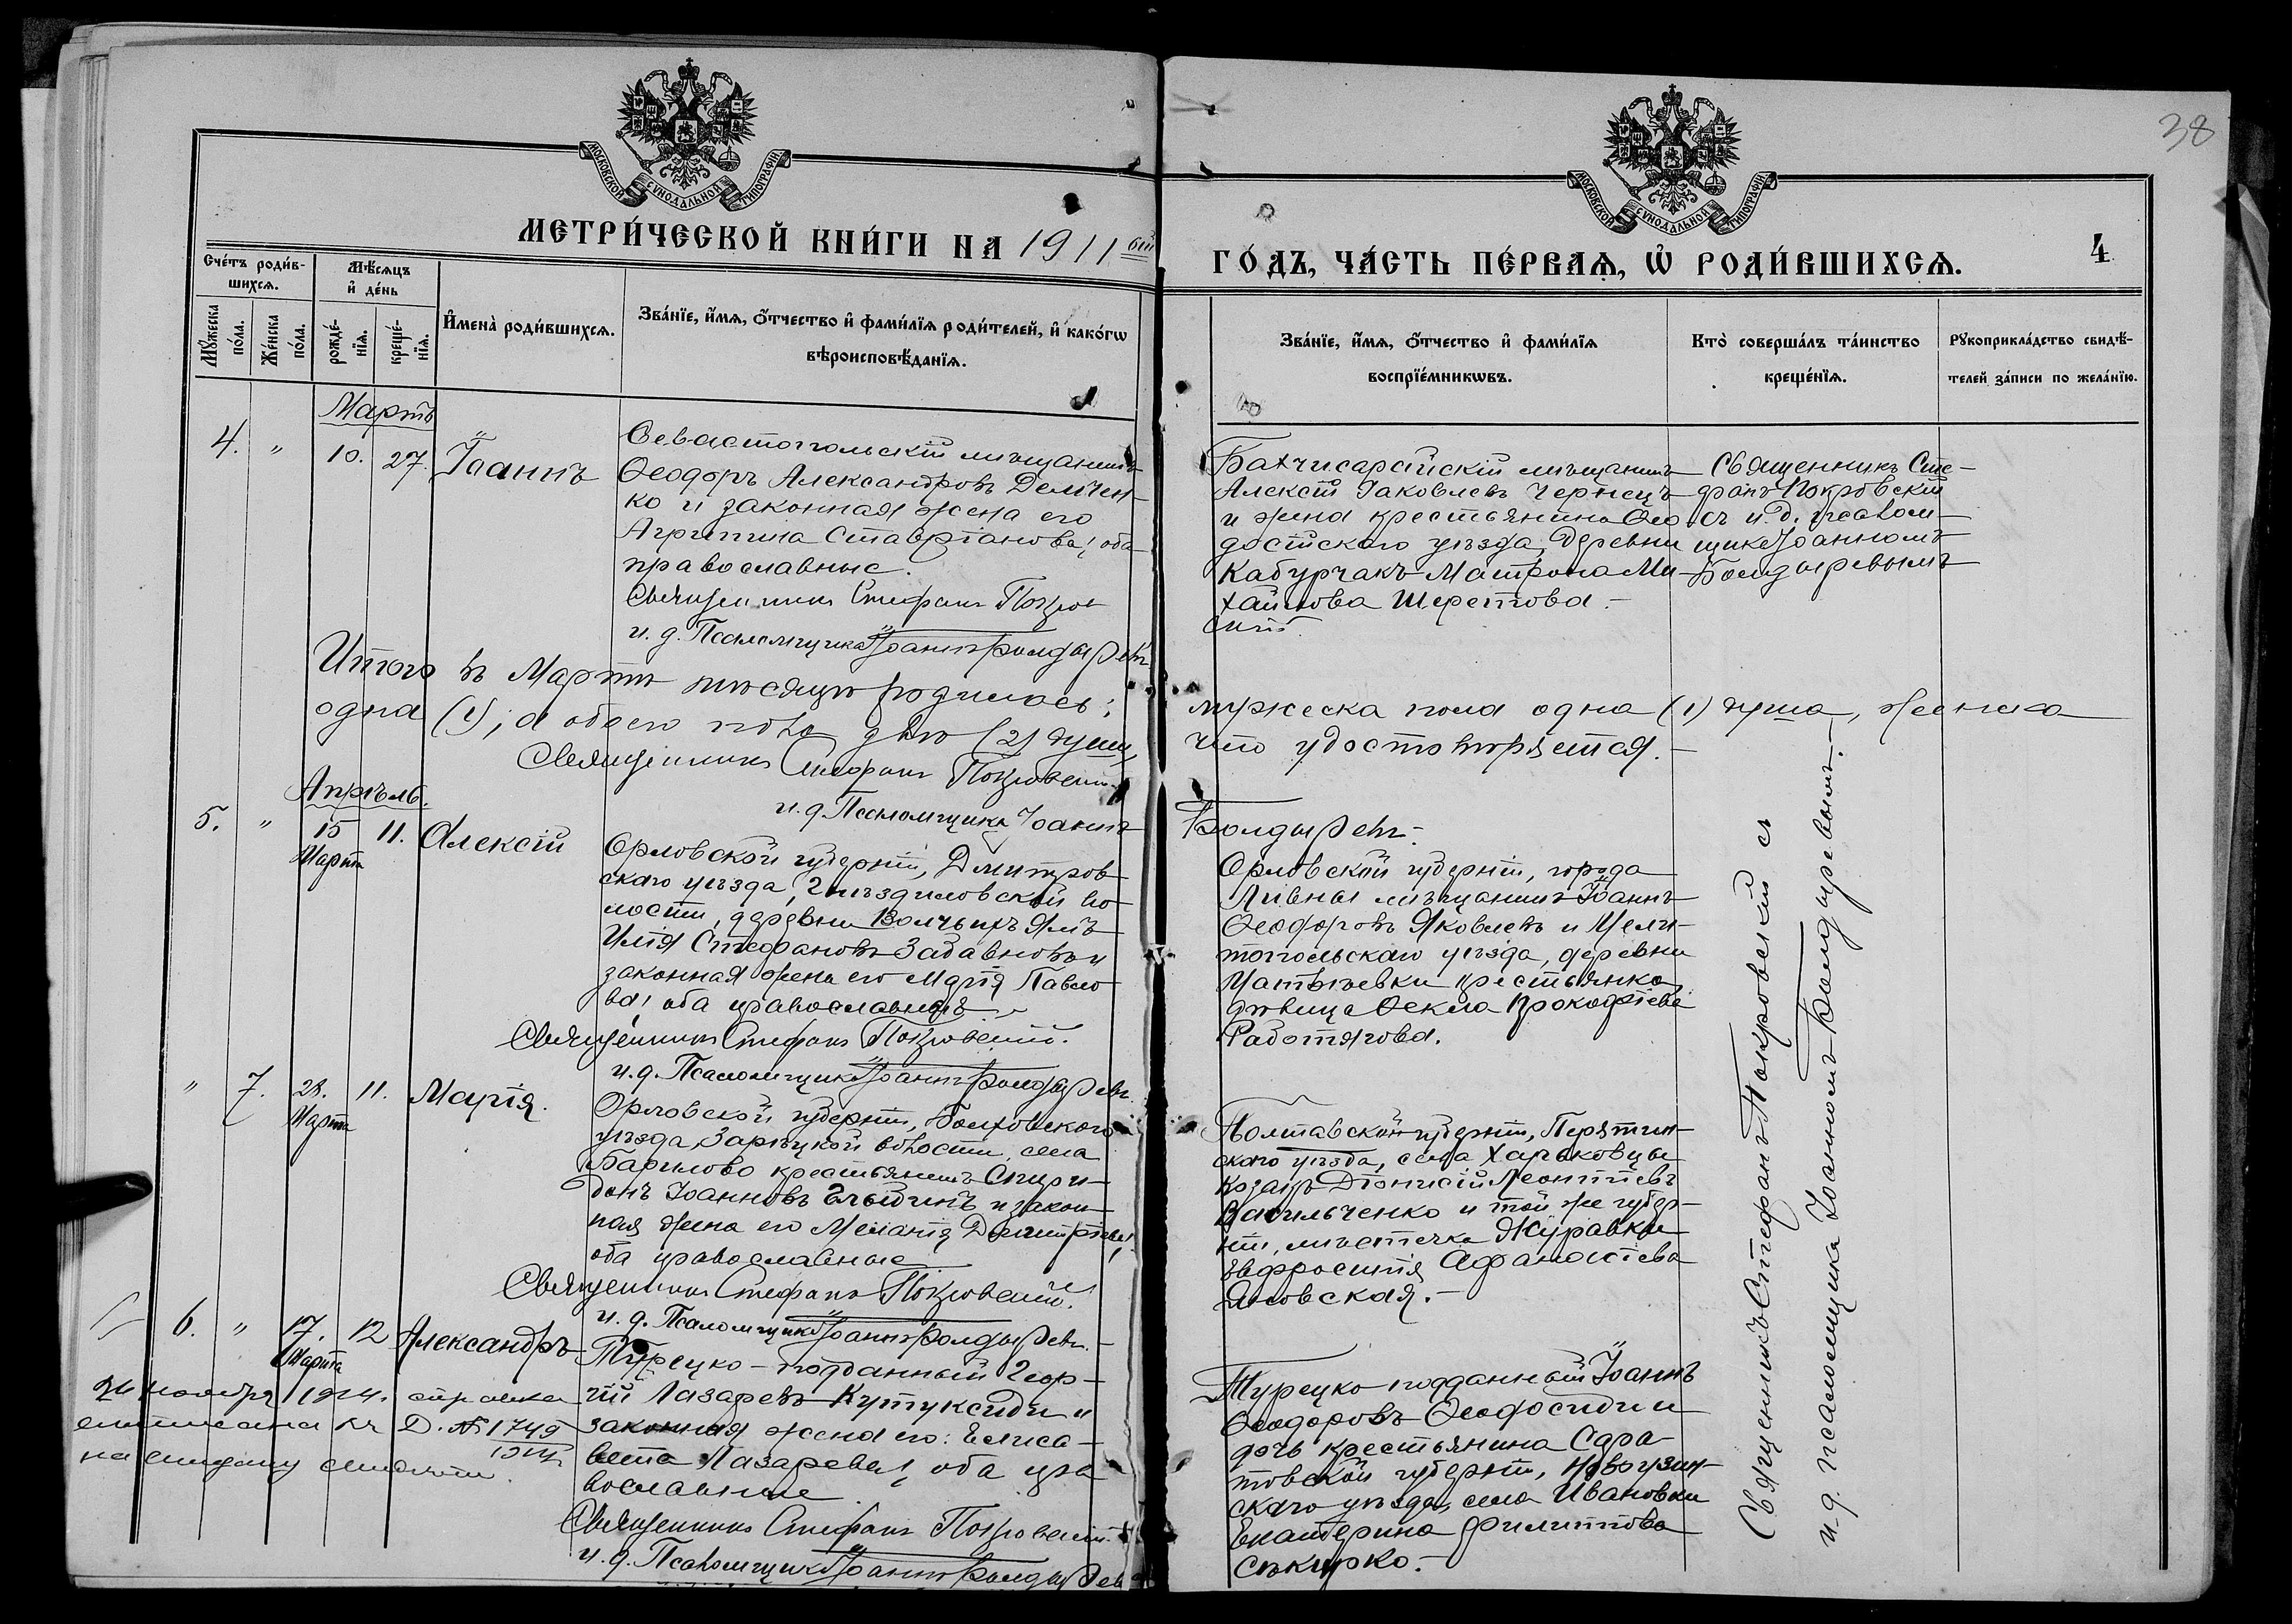 38
МОСКОВСКОЙ СѴНОДАЛЬНОЙ ТИПОГРАФІИ
МОСКОВСКОЙ СѴНОДАЛЬНОЙ ТИПОГРАФІИ
МЕТРИ́ЧЕСКОЙ КНИ́ГИ НА 1911 ый
ГО́ДЪ, ЧА́СТЬ ПЕ́РВАѦ, Ѡ҆ РОДИ́ВШИХСѦ.
4
Сче́тъ роди́в-
шихсѧ.
Мꙋ́жеска по́ла.
Же́нска по́ла.
Мѣ́сѧцъ
и҆ де́нь
рожде́-
нїѧ.
креще́-
нїѧ.
И҆мена̀ роди́вшихсѧ.
Зва́нїе, и҆́мѧ, ѻ҆́тчество и҆ фами́лїѧ роди́телей, и҆ како́гѡ
вѣроисповѣ́данїѧ.
Зва́нїе, и҆́мѧ, ѻ҆́тчество и҆ фами́лїѧ
воспрїе́мникѡвъ.
Кто̀ соверша́лъ та́инство
креще́нїѧ.
Рꙋкоприкла́дство свидѣ́-
телей за́писи по жела́нїю.
Мартъ
4. " 10. 27. Іоаннъ
Севастопольскій мѣщанинъ
Ѳеодоръ Александровъ Демчен-
ко и законная жена его
Агрипина Ставріанова, оба
православные.
Священникъ Стефанъ Покров-
скій.
и. д. Псаломщика Іоаннъ Болдыревъ
Бахчисарайскій мѣщанинъ
Алексій Іаковлевъ Чернецъ
и жена крестьянина Ѳео-
досійскаго уѣзда, деревни
Кабурчакъ Матрона Ми-
хайлова Шереттова.-
Священникъ Сте-
фанъ Покровскій
съ и. д. псалом-
щика Іоанномъ
Болдыревымъ
Итого въ Мартѣ мѣсяцѣ родилось: мужеска пола одна (1) душа, женска
одна (1); а обоего пола двѣ (2) души, что удостовѣряется.-
Священникъ Стефанъ Покровскій.
и. д. Псаломщика Іоаннъ Болдыревъ.-
Апрѣль.
5. " 15 Марта 11. Алексій
Орловской губерніи, Дмитров-
скаго уѣзда, Гнѣздиловской во-
лости, деревни Волчьихъ Ямъ
Илія Стефановъ Забавновъ и
законная жена его Марія Павло-
ва, оба православные.
Священникъ Стефанъ Покровскій.
и. д. Псаломщика Іоаннъ Болдыревъ.
Орловской губерніи, города
Ливны мѣщанинъ Іоаннъ
Ѳеодоровъ Яковлевъ и Мели-
топольскаго уѣзда, деревни
Матвѣевки крестьянка
дѣвица Ѳекла Прокофіева
Работягова.
" 7. 28. Марта 11. Марія.
Орловской губерніи, Болховскаго
уѣзда, Зарѣцкой волости, села
Барилово крестьянинъ Спири-
донъ Іоанновъ и закон-
ная жена его Меланія Димитріева,
оба православные
Священникъ Стефанъ Покровскій.
и. д. Псаломщика Іоаннъ Болдыревъ.-
Полтавской губерніи, Пирятин-
скаго уѣзда, села Харьковцы
козакъ Діонисій Леонтіевъ
Васильченко и той же губер-
ніи, мѣстечка Журавки
Евфросинія Аѳанасіева
Яновская.-
6. " 17. Марта 12 Александръ
Турецко-подданный Геор-
гій Лазаревъ Кутуксиди и
законная жена его Елиса-
вета Лазарева, оба пра-
вославные
Священникъ Стефанъ Покровскій.
и. д. Псаломщика Іоаннъ Болдыревъ
Турецко-подданный Іоаннъ
Ѳеодоровъ Ѳеофосиди и
дочь крестьянина Сара-
товской губерніи, Новоузен-
скаго уѣзда, села Ивановки
Екатерина Филиппова
Сѣкирко.-
24 ноября 1914. справка
Д. № 1749
1914
на
Священникъ Стефанъ Покровскій съ
и. д. псаломщика Іоанномъ Болдыревымъ.-